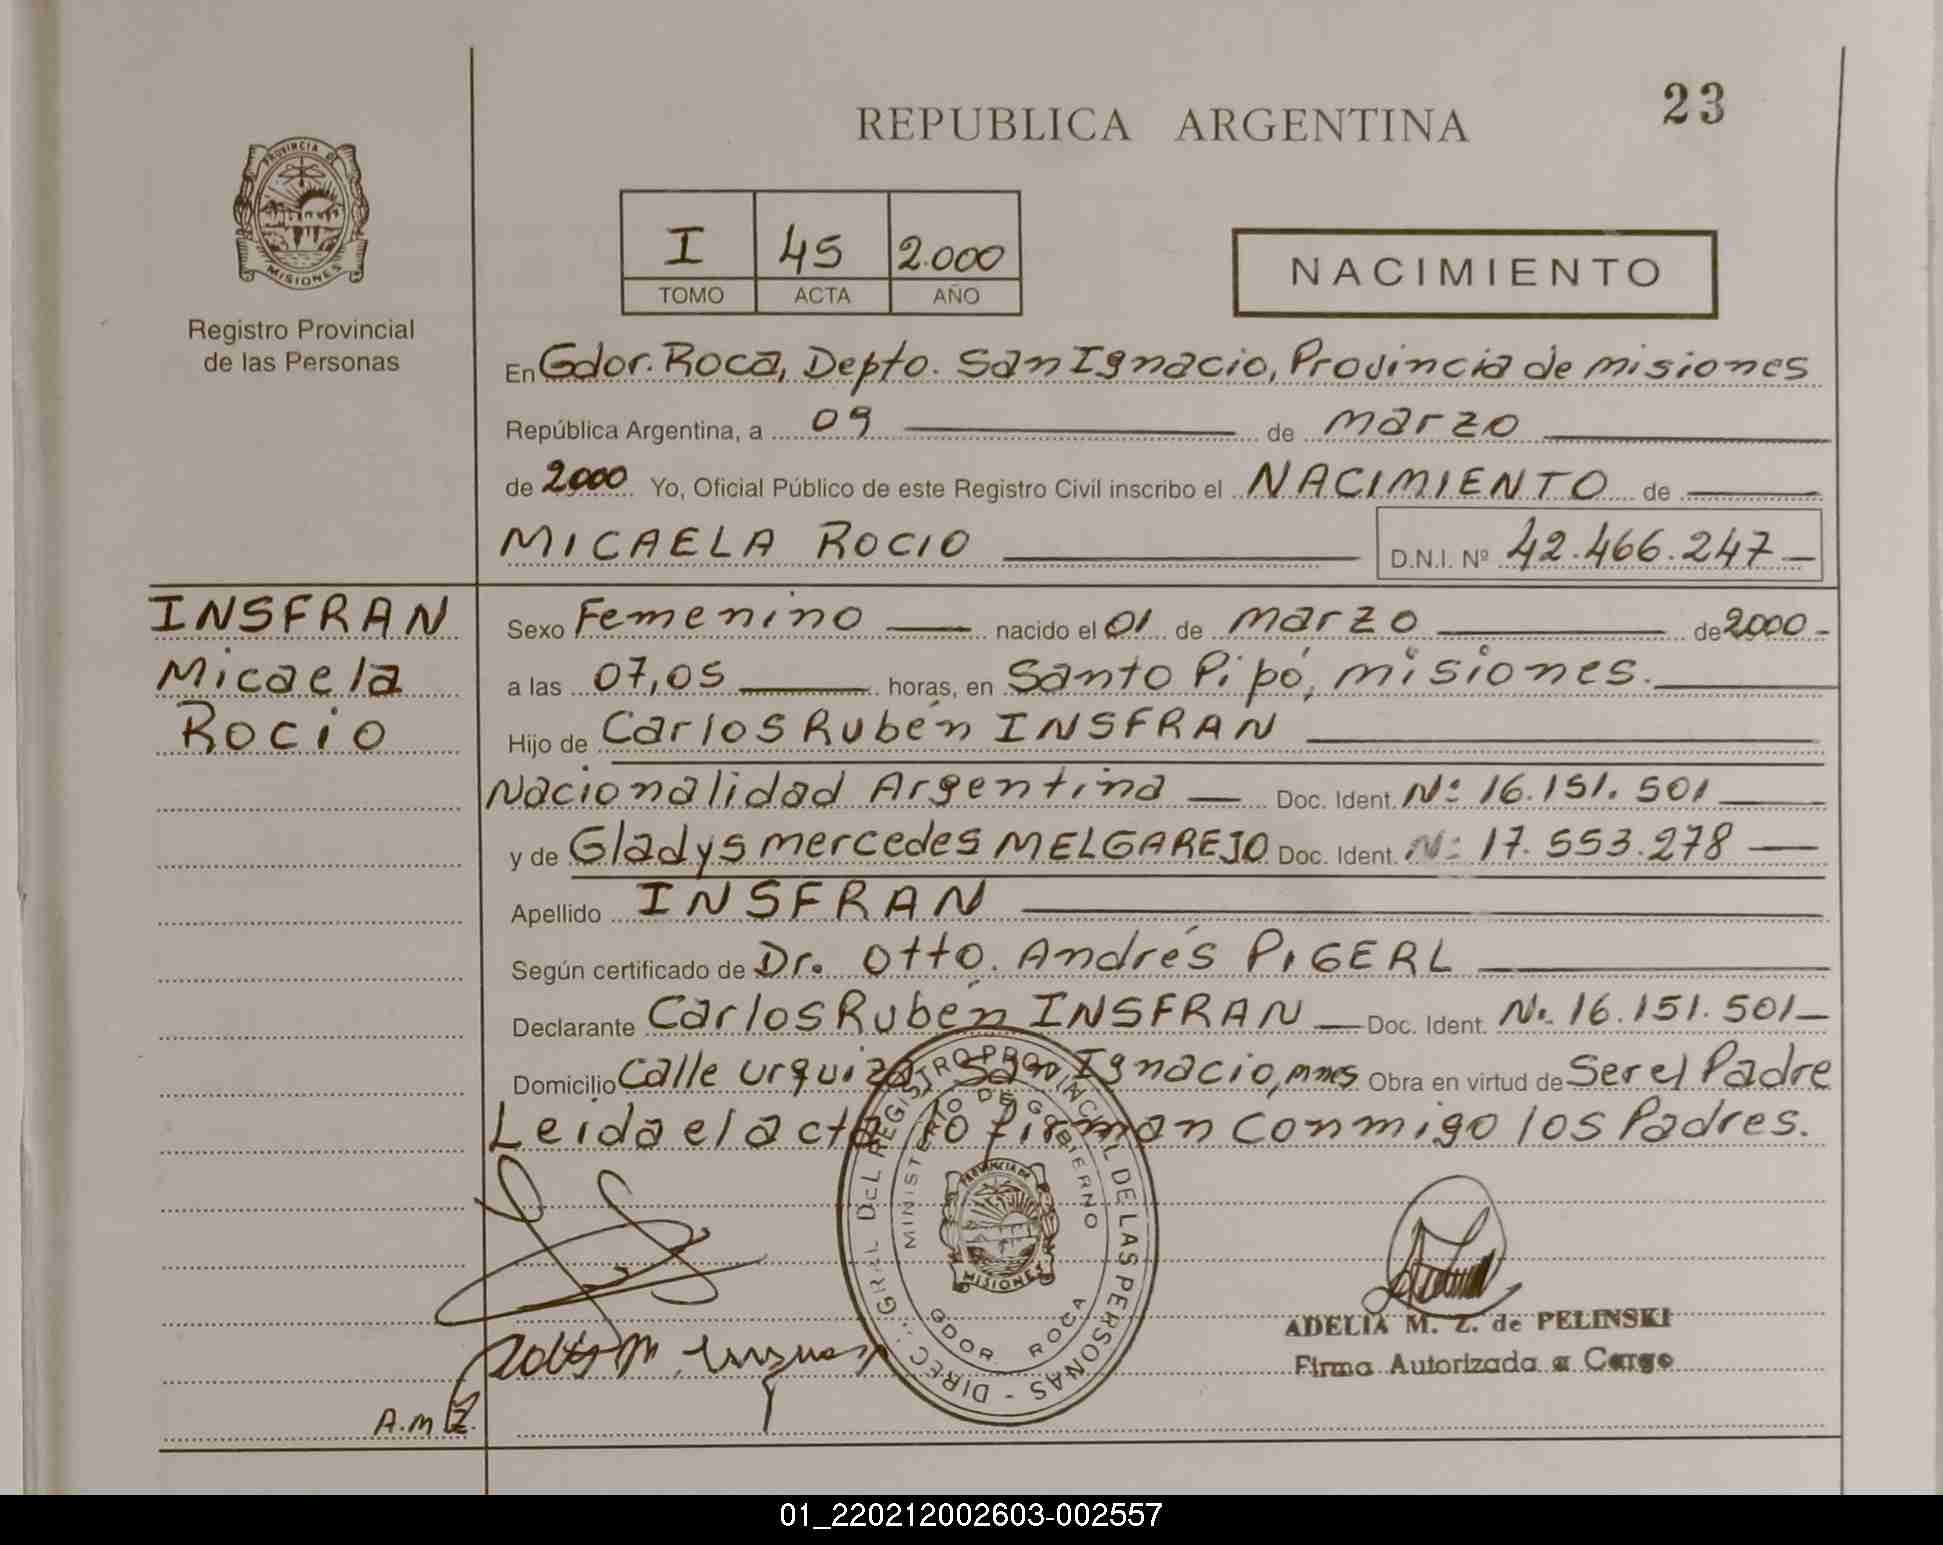 23
REPUBLICA ARGENTINA
PROVINCIA DE
MISIONES
I 45 2.000
TOMO ACTA AÑO
NACIMIENTO
Registro Provincial
de las Personas
En Gdor. Roca, Depto. San Ignacio, Provincia de misiones
República Argentina, a 09 de marzo
de 2000 Yo, Oficial Público de este Registro Civil inscribo el NACIMIENTO de
MICAELA ROCIO D.N.I. Nº 42.466.247
INSFRAN
Micaela
Rocio
Sexo Femenino nacido el 01 de marzo de 2000
a las 07,05 horas, en Santo Pipó, misiones.
Hijo de Carlos Rubén INSFRAN
Nacionalidad Argentina Doc. Ident. Nº 16.151.501
y de Gladys mercedes MELGAREJO Doc. Ident. Nº 17.553.278
Apellido INSFRAN
Según certificado de Dr. Otto. Andrés PIGERL
Declarante Carlos Rubén INSFRAN Doc. Ident. Nº 16.151.501
Domicilio Calle Urquiza San Ignacio, mnes Obra en virtud de Ser el Padre
Leida el acta lo firman conmigo los Padres.
DIREC. GRAL DEL REGISTRO PROVINCIAL DE LAS PERSONAS -
MINISTERIO DE GOBIERNO
PROVINCIA DE
MISIONES
GDOR. ROCA
ADELIA M. Z. de PELINSKI
Firma Autorizada a Cargo
A.M.Z.
01_220212002603-002557